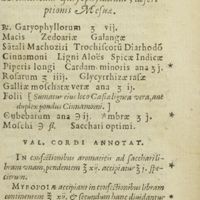 ptionis Mesuæ.
℞. Garyophyllorum ʒ vij.
Macis Zedoariæ Galangæ
Sātali Machoziri Trochiscorū Diarhodō
Cinnamomi Ligni Aloës Spicæ Indicæ
Piperis longi Cardam. minoris ana ʒ j.
Rosarum ʒ iiij. Glycyrrhizæ rasæ
Galliæ moschatæ veræ ana ʒ ij
Folij [ Sumatur eius loco Casia lignea vera, aut
duplex pondus Cinnamomi. ]
Cubebarum ana ℈ ij. Ambræ ʒ j.
Moschi ℈ ß. Sacchari optimi.
VAL. CORDI ANNOTAT.
In confectionibus aromaticis ad sacchari li-
bram unam, pendentem ℥ xij. accipiatur ℥ j. spe-
cierum.
MYROPOLÆ accipiunt in confectionibus libram
continentem ℥ xij. & secundum hanc dividantur